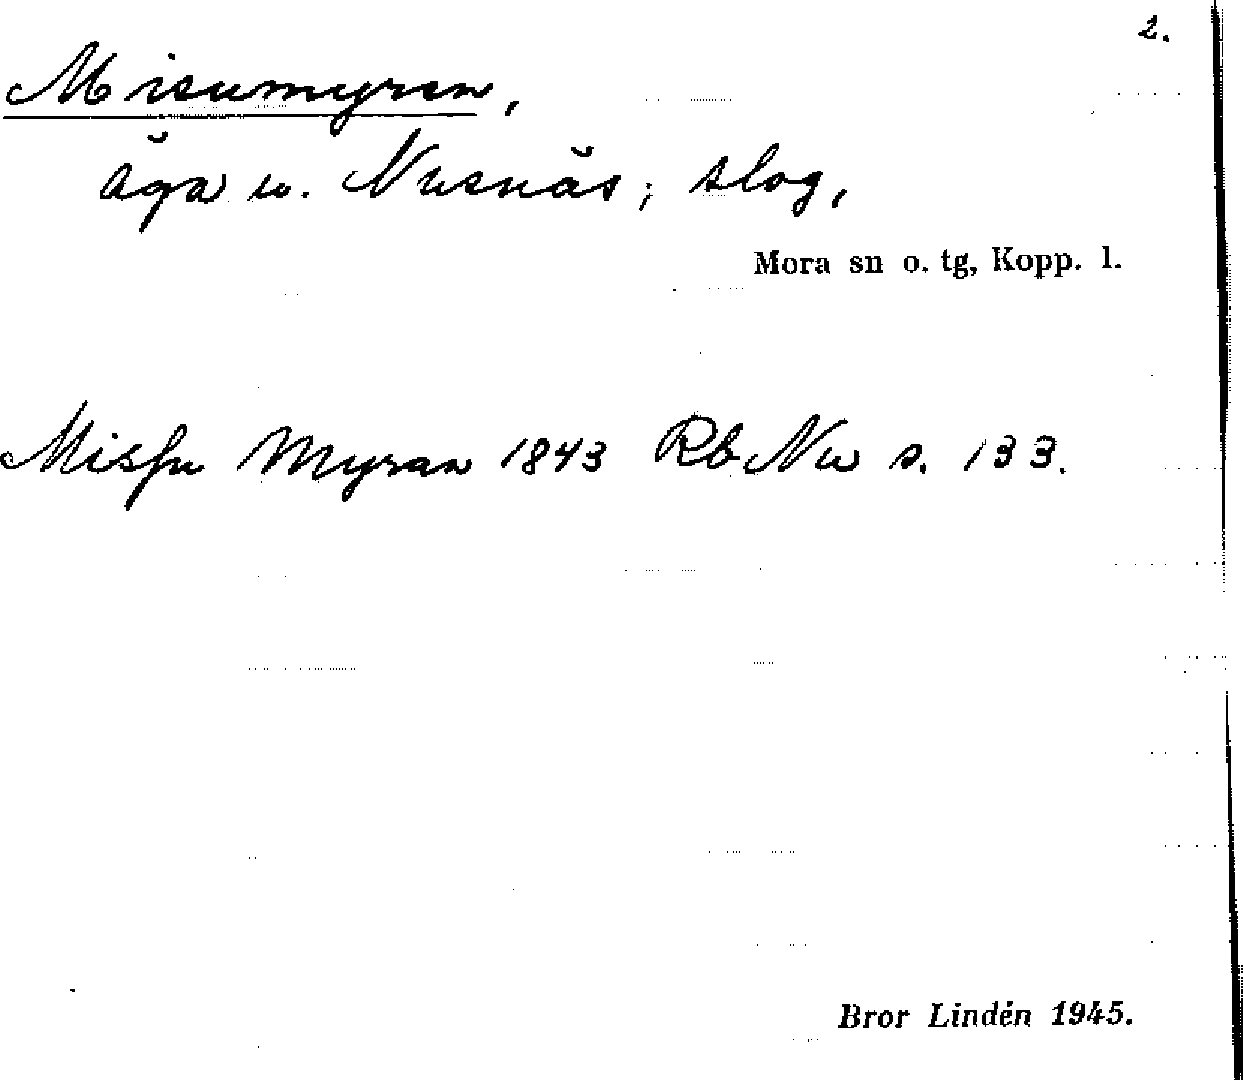 2.
Misumyren,
äga u. Nusnäs; slog,
Mora sn o. tg, Kopp. l.
Missu Myran 1843 Rb Nu s. 133.
Bror Lindén 1945.